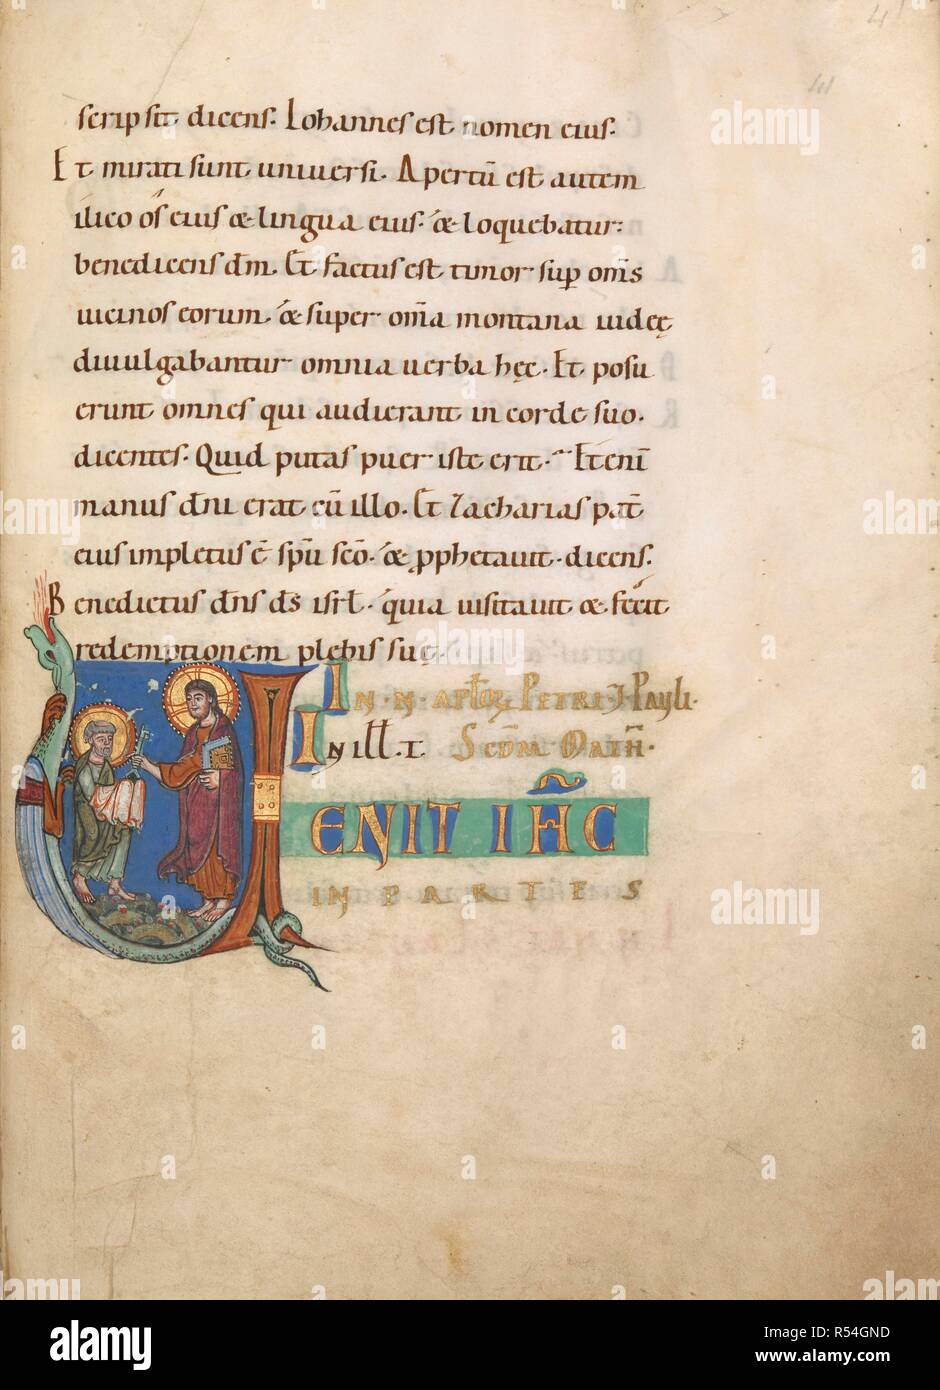 41
41
scripsit dicens. Iohannes est nomen eius.
Et mirati sunt universi. Apertū est autem
ilico os eius & lingua eius. & loquebatur:
benedicens dm̄. Et factus est timor sup om̄s
uicinos eorum, & super om̄a montana iudeę
diuulgabantur omnia uerba hęc. Et posu
erunt omnes qui audierant in corde suo.
dicentes. Quid putas puer iste erit. Etenī
manus dn̄i erat cū illo. Et Zacharias pat̄
eius impletus ē spū scō. & prophetauit. dicens.
Benedictus dn̄s ds̄ isrl. quia uisitauit & fecit
redemptionem plebis suę.
IN. N. APLOR PETRI & PAULI.
IN ILL T. SCDM MATH.
UENIT IHC
IN PARTES
alamy
alamy
Image ID: R54GND
www.alamy.com